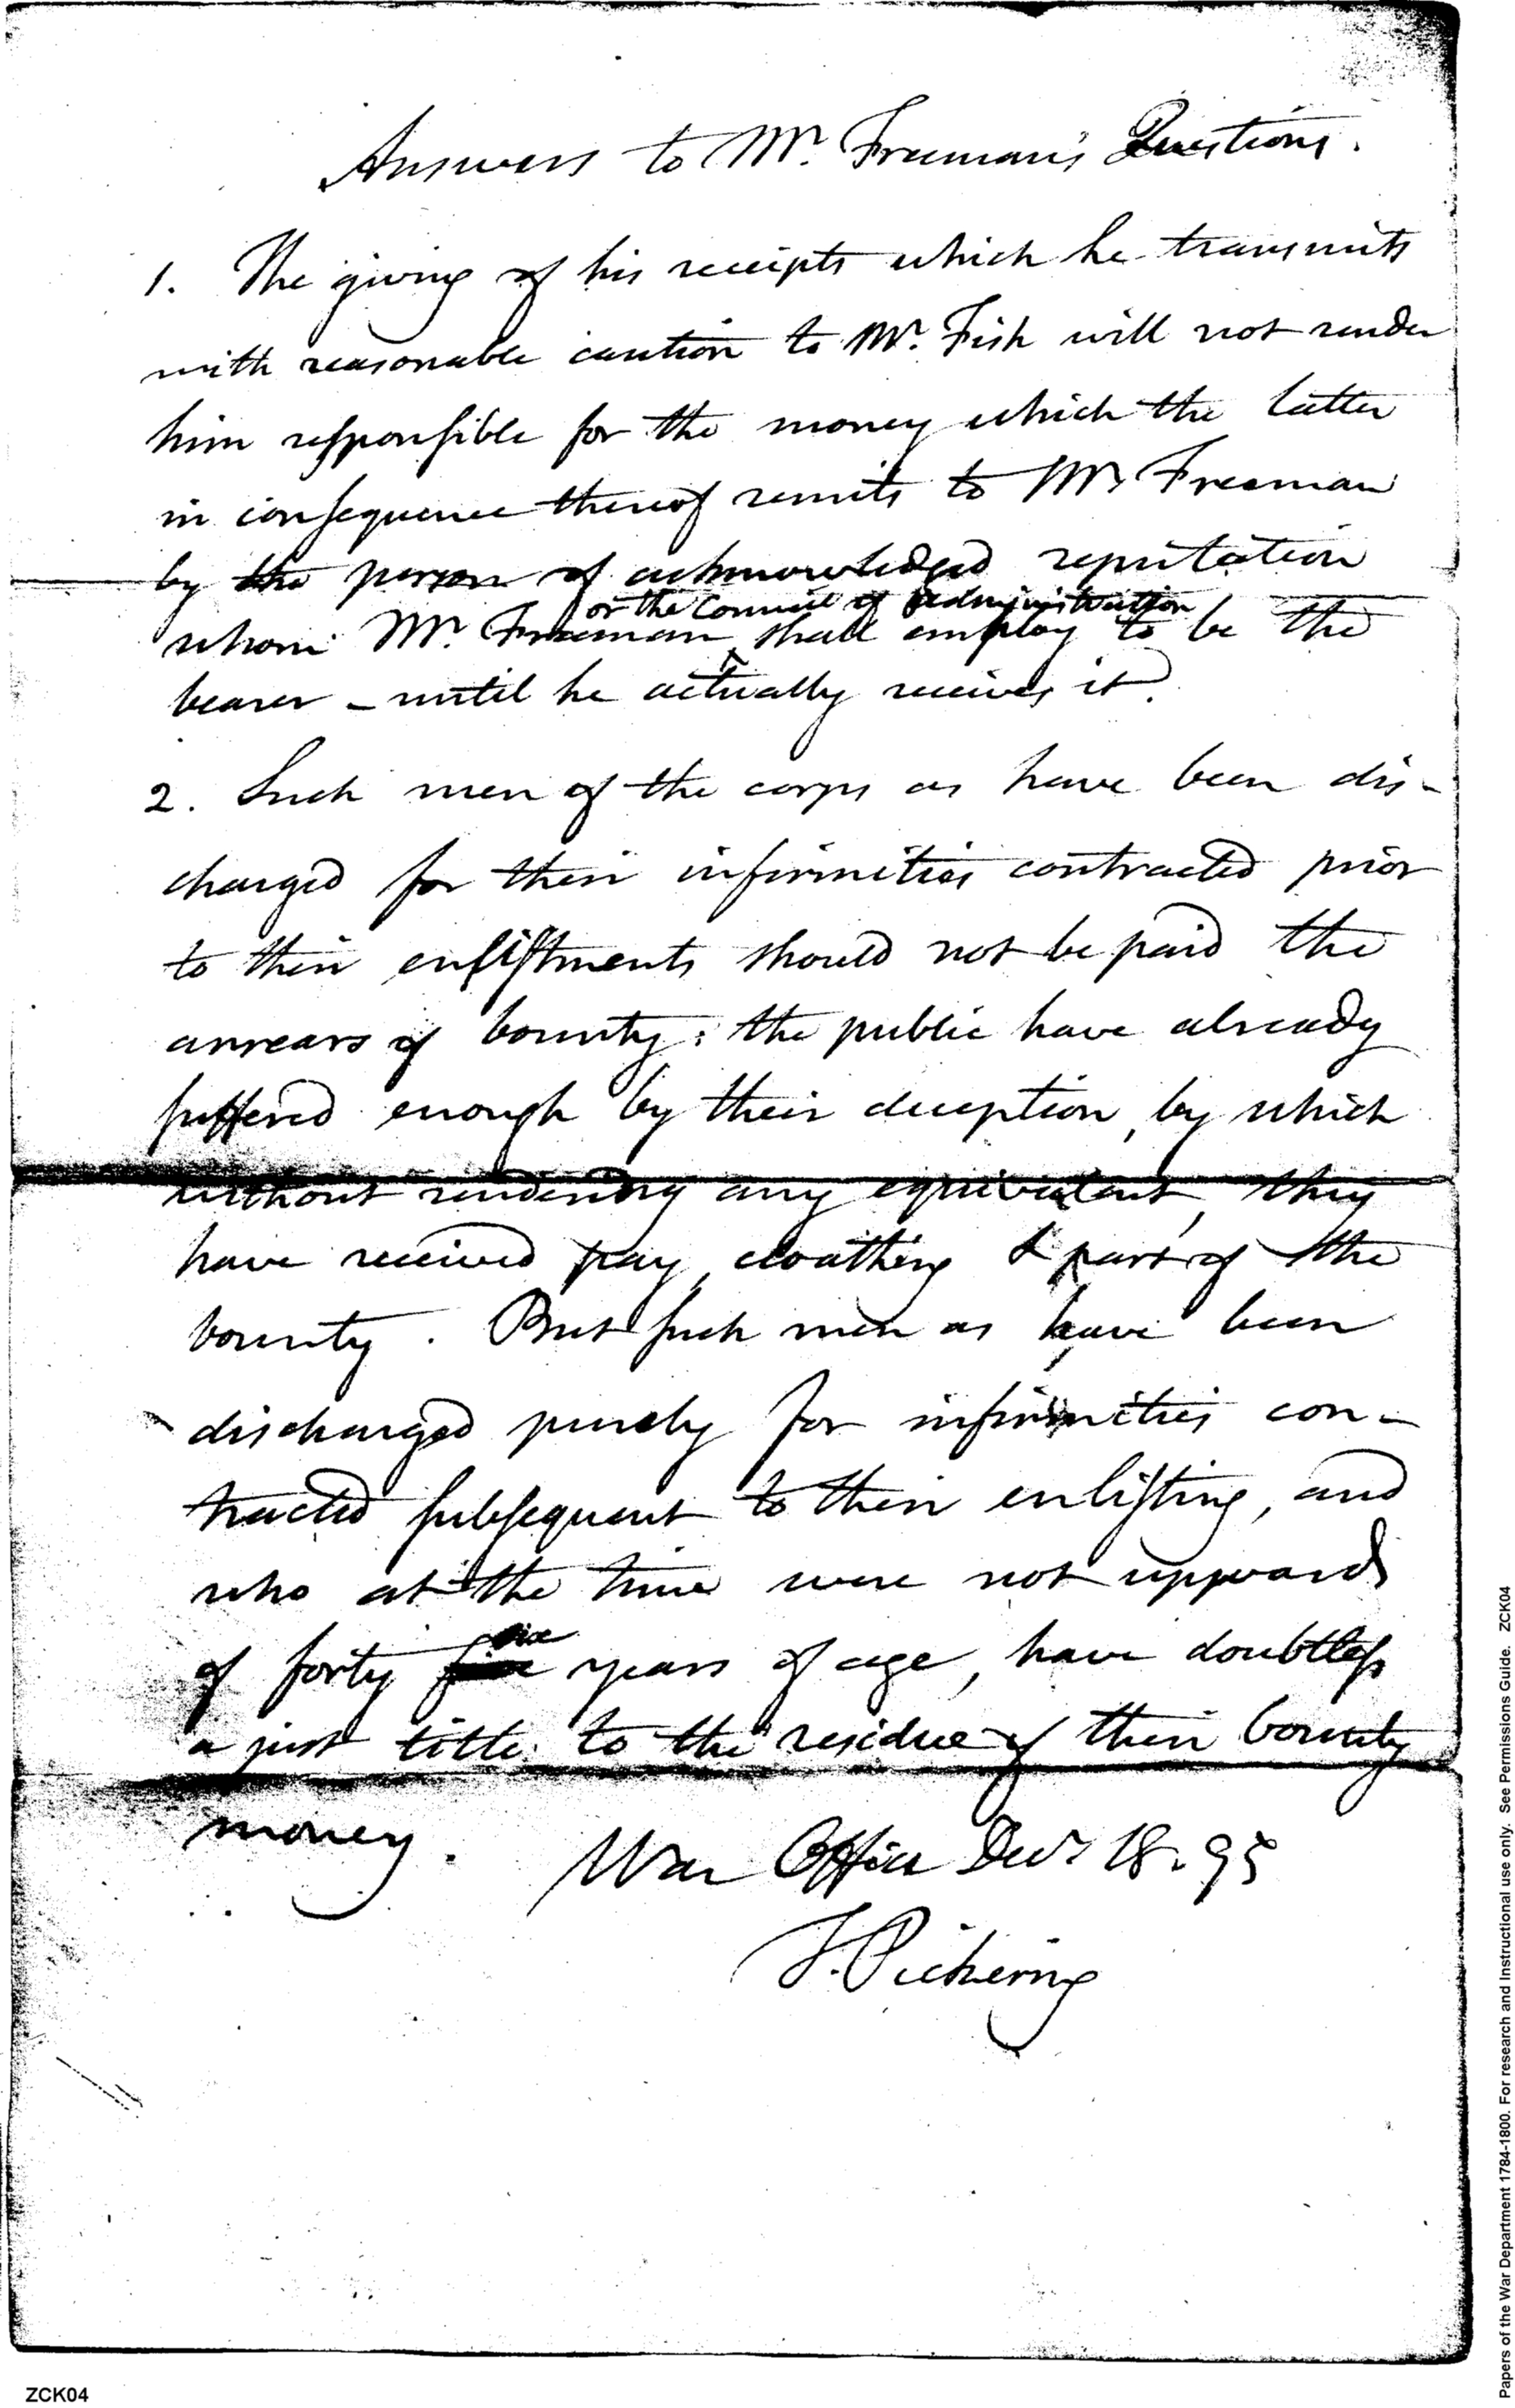 Answers to Mr. Freeman's Questions.
1. The giving of his receipts which he transmits
with reasonable caution to Mr. Fish will not render
him responsible for the money which the latter
in consequence thereof remits to Mr Freeman
by the person of acknowledged reputation
or the Council of Administration
whom Mr. Freeman ‸ shall employ to be the
bearer – until he actually receives it.
2. Such men of the corps as have been dis-
charged for their infirmities contracted prior
to their enlistments should not be paid the
arrears of bounty: the public have already
suffered enough by their deception, by which
without rendering any equivalent, they
have received pay, cloathing & part of the
bounty. But such men as have been
discharged purely for infirmities con-
tracted subsequent to their enlisting, and
who at the time were not upwards
of forty six years of age, have doubtless
a just title to the residue of their bounty
money.
War Office Decr 18. 95
T. Pickering
ZCK04
Papers of the War Department 1784-1800. For research and Instructional use only. See Permissions Guide. ZCK04